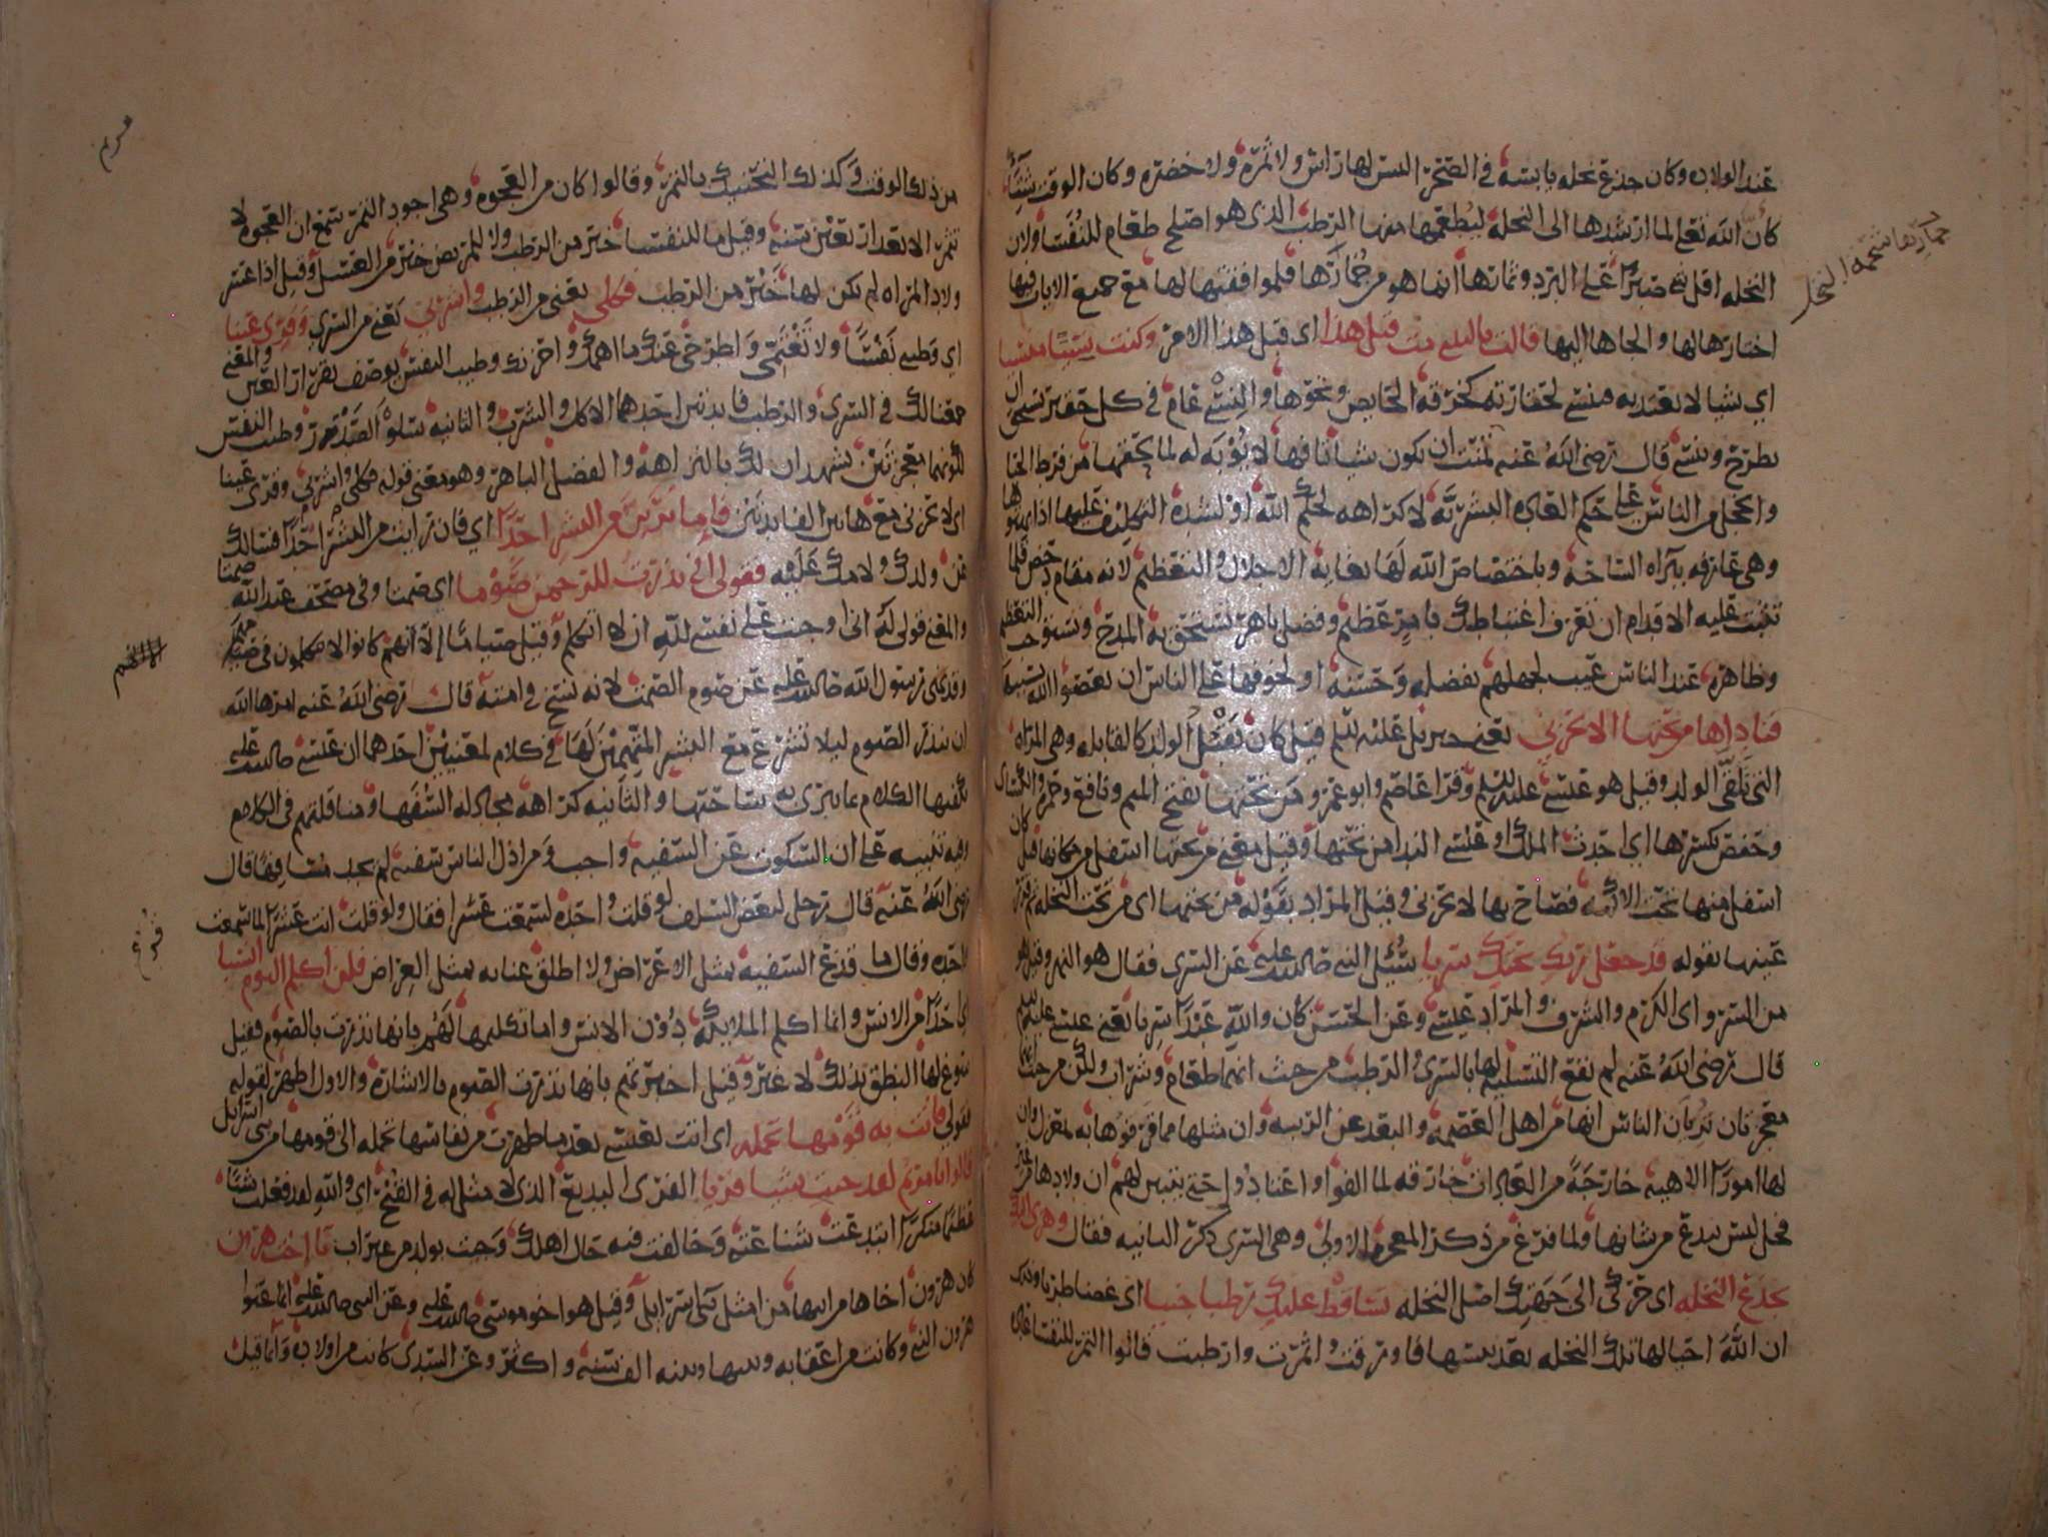 عند الولاده وكان جذع نخله يابسه في الصحرا ليس لها راس ولا ثمره ولا خضره وكان الوقت شتاء
كان الله تعلى لما ارشدها الى النخله ليطعمها منها الرطب الذي هو اصلح طعام للنفسا ولان
النخله اقل شي صبرا على البرد وثمارها انما هو من جمارها فلموافقتها لها مع جميع الايات فيها
اختارها لها والجاها اليها قالت ياليتني مت قبل هذا اي قبل هذا الامر وكنت نسيا منسيا
اي شيا لا يعتد به منسي لحقارته كخرقه الحايض ونحوها والنسي عام في كل حقير يستحق ان
يطرح وينسى قال رضى الله عنه تمنت ان تكون شيا تافها لا يوبه له لما لحقها من فرط الحيا
والخجل من الناس على حكم العاده البشريه لا كراهه لحكم الله او لشده التكليف عليها اذا بهتوها
وهي عارفه ببراه الساحه وباختصاص الله لها بغايه الاجلال والتعظيم لانه مقام دحض قلما
تثبت عليه الاقدام ان تعرف اغتباطك بامر عظيم وفضل باهر تستحق به المدح وتستوجب التعظيم
وظاهره عند الناس عيب لجهلهم بفضله وحسنه او لخوفها على الناس ان يعصوا الله بسببها
فناداها من تحتها الا تحزني يعني جبريل عليه السلم قيل كان يقبل الولد كالقابله وهي المراه
التي تلقى الولد وقيل هو عيسى عليه السلم وقرا عاصم وابو عمرو من تحتها بفتح الميم ونافع وحمزه والكسائي
وحفص بكسرها اي احدث الملك او عيسى الندا من تحتها وقيل معنى من تحتها اسفل من مكانها قيل كان
اسفل منها تحت الاكمه فصاح بها لا تحزني وقيل المراد بقوله من تحتها اي من تحت النخله ثم قرر
عينها بقوله قد جعل ربك تحتك سريا سئل النبي صلى الله عليه عن السري فقال هو النهر وقيل هو
من السرو اي الكرم والشرف والمراد عيسى وعن الحسن كان والله عبدا سريا يعني عيسى عليه السلم
قال رضى الله عنه لم تقع التسليه لها بالسري والرطب من حيث انهما طعام وشراب ولكن من حيث انهما
معجزتان تريان الناس انها من اهل العصمه والبعد عن الريبه وان مثلها مما قرفوها به بمعزل وان
لها امورا الاهيه خارجة من العادات خارقه لما الفوا واعتادوا حتى يتبين لهم ان ولادها من غير
فحل ليس ببدع من شانها ولما فرغ من ذكر المعجزه الاولى وهي السري ذكر الثانيه فقال وهزي اليك
بجذع النخله اي حركي الى جهتك اصل النخله تساقط عليك رطبا جنيا اي غضا طريا وذلك
ان الله احيا لها تلك النخله بعد يبسها فاورقت واثمرت وارطبت قالوا التمر للنفسا عاده
جمارها شحمه النخل
مريم
من ذلك الوقت وكذلك التحنيك بالتمر وقالوا كان من العجوه وهي اجود التمر سمع ان العجوه لا
تثمر الا بعد اربعين سنه وقيل ما للنفسا خير من الرطب ولا للمريض خير من العسل وقيل اذا عسر
ولاد المراه لم يكن لها خير من الرطب فكلي يعني من الرطب واشربي يعني من السري وقري عينا
اي وطيبي نفسا ولا تغتمي واطرحي عنك ما اهمك واحزنك وطيب النفس يوصف بقرار العين والمعنى
جمعنا لك في السري والرطب فايدتين احدهما الاكل والشرب والثانيه سلوة الصدر وطيب النفس
لكونهما معجزتين يشهدان لك بالنزاهه والفضل الباهر وهو معنى قوله فكلي واشربي وقري عينا
اي لا تحزني مع هاتين الفايدتين فاما ترين من البشر احدا اي فان رايت من البشر احدا فسالك
عن ولدك ولامك عليه فقولي اني نذرت للرحمن صوما اي صمتا وفي مصحف عبد الله صمتا
والمعنى قولي له اني اوجبت على نفسي لله ان لا اتكلم وقيل صياما الا انهم كانوا لا يتكلمون في صيامهم
وقد نهى رسول الله صلى الله عليه عن صوم الصمت لانه نسخ في امته قال رضى الله عنه امرها الله
ان تنذر الصوم ليلا تشرع مع البشر المتهمين لها في كلام لمعنيين احدهما ان عيسى صلى الله عليه
يكفيها الكلام بما يبرئ به ساحتها والثانيه كراهه مجادله السفها ومناقلتهم في الكلام
وفيه تنبيه على ان السكوت عن السفيه واجب ومن اذل الناس سفيه لم يجد مسافها قال
رضى الله عنه قال رجل لبعض السلف لو قلت واحده لسمعت عشرا فقال ولو قلت انت عشرا لما سمعت
واحده وقال ما قدع السفيه بمثل الاعراض ولا اطلق عنانه بمثل العراض فلن اكلم اليوم انسيا
اي احدا من الانس وانما اكلم الملايكه دون الانس واما تكلمها لهم بانها نذرت بالصوم فقيل
سوغ لها النطق بذلك لا غير وقيل اخبرتهم بانها نذرت الصوم بالاشاره والاول اظهر لقوله
فقولي فاتت به قومها تحمله اي اتت بعيسى بعد ما طهرت من نفاسها تحمله الى قومها من بني اسرايل
قالوا يا مريم لقد جيت شيا فريا الفري البديع الذي لا مثل له في القبح اي والله لقد فعلت شيا
عظيما منكرا ابتدعت شناعته وخالفت فيه حال اهلك وجيت بولد من غير اب يا اخت هرون
كان هرون اخاها من ابيها من امثل بني اسرايل وقيل هو اخو موسى صلى الله عليه وعن النبي صلى الله عليه انما عنوا
هرون النبي وكانت من اعقابه وبينها وبينه الف سنه واكثر وعن السدي كانت من اولاده وانما قيل